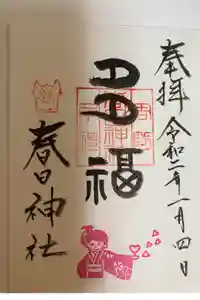 奉拝 令和二年一月四日
多福
春日神社